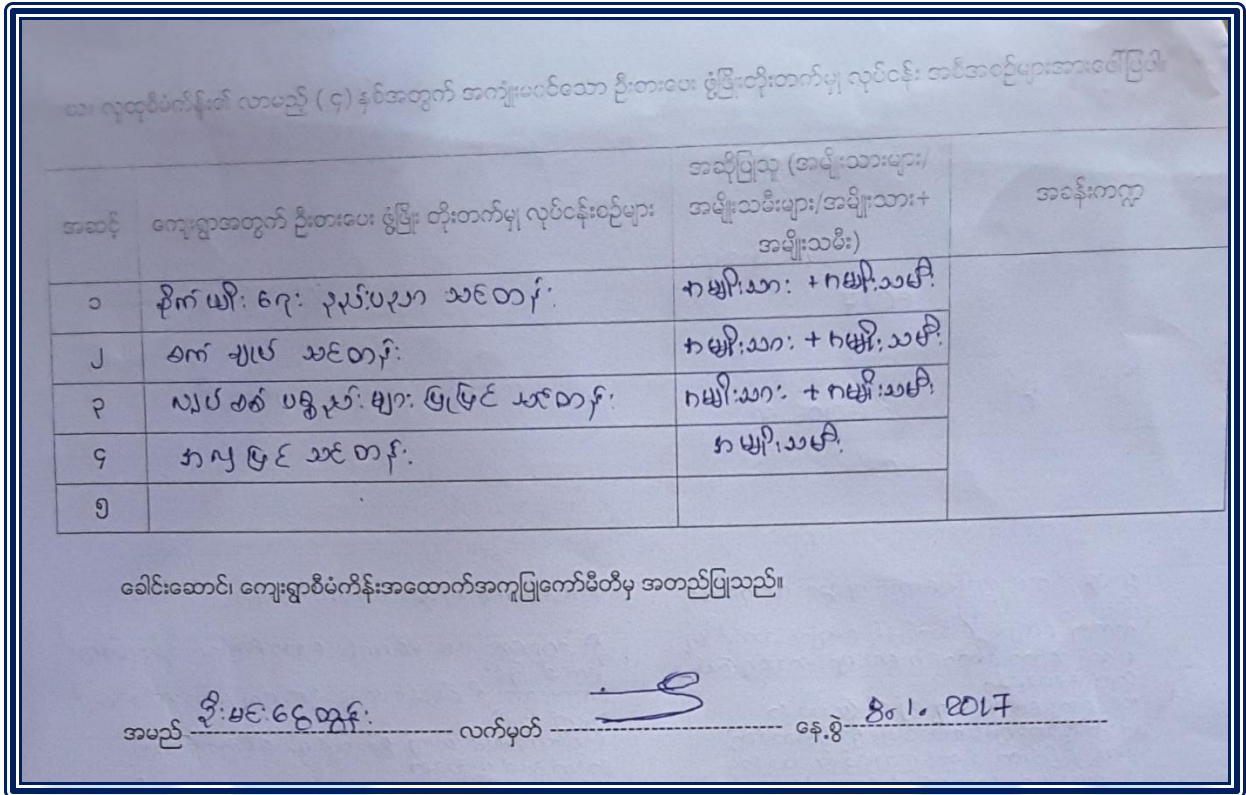 လူထုစီမံကိန်း၏ လာမည့် (၄) နှစ်အတွက် အကျုံးမဝင်သော ဦးစားပေး ဖွံ့ဖြိုးတိုးတက်မှု လုပ်ငန်း အစီအစဉ်များအားဖော်ပြပါ။
အဆင့် ကျေးရွာအတွက် ဦးစားပေး ဖွံ့ဖြိုး တိုးတက်မှု လုပ်ငန်းစဉ်များ အဆိုပြုသူ (အမျိုးသားများ/ အမျိုးသမီးများ/အမျိုးသား+ အမျိုးသမီး) အခန်းကဏ္ဍ
၁ စိုက်ပျိုး ရေး နည်းပညာ သင်တန်း အမျိုးသား + အမျိုးသမီး
၂ စက် ချုပ် သင်တန်း အမျိုးသား + အမျိုးသမီး
၃ လျှပ်စစ် ပစ္စည်း များ ပြုပြင် သင်တန်း အမျိုးသား + အမျိုးသမီး
၄ အလှ ပြင် သင်တန်း အမျိုးသမီး
၅
ခေါင်းဆောင်၊ ကျေးရွာစီမံကိန်းအထောက်အကူပြုကော်မီတီမှ အတည်ပြုသည်။
အမည် ဦးမင်းငွေထွန်း လက်မှတ် နေ့စွဲ 8.1.2017